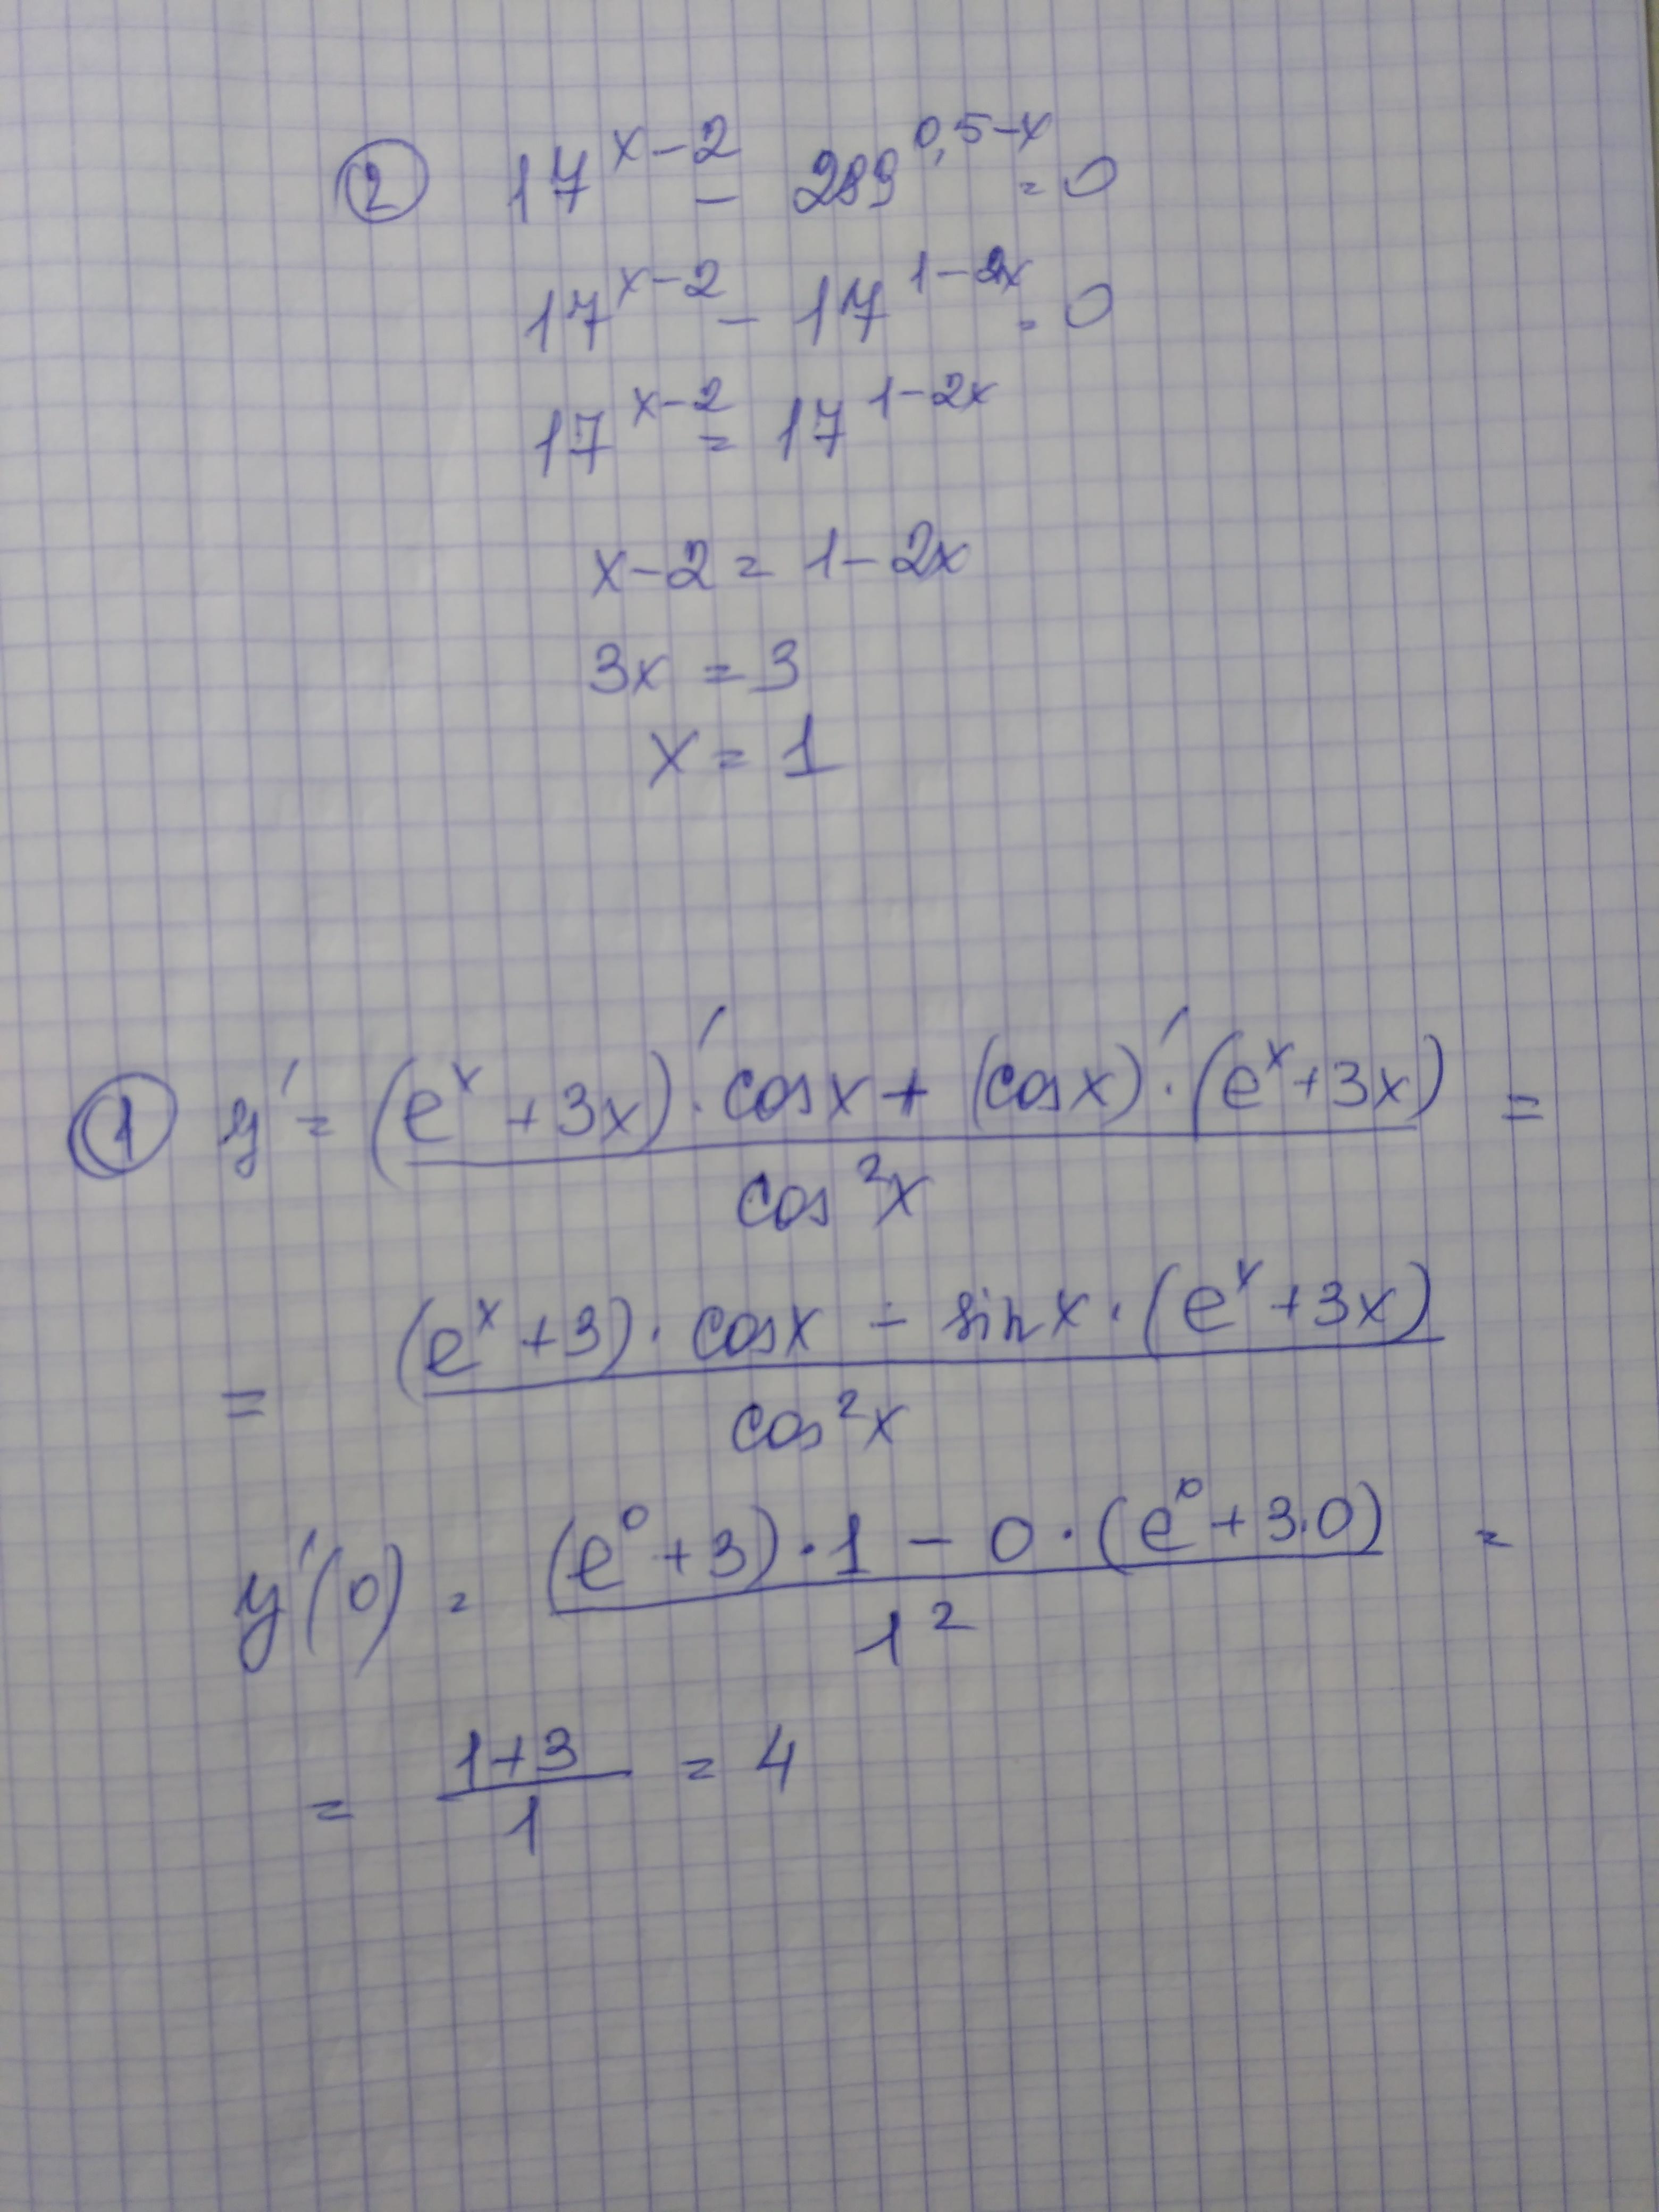 ② 17^(x-2) - 289^(0,5-x) = 0
17^(x-2) - 17^(1-2x) = 0
17^(x-2) = 17^(1-2x)
x-2 = 1-2x
3x = 3
x = 1
① y' = ((e^x + 3x)' · cosx + (cosx)' · (e^x + 3x)) / cos²x =
= ((e^x + 3) · cosx - sinx · (e^x + 3x)) / cos²x
y'(0) = ((e^0 + 3) · 1 - 0 · (e^0 + 3·0)) / 1² =
= (1+3) / 1 = 4